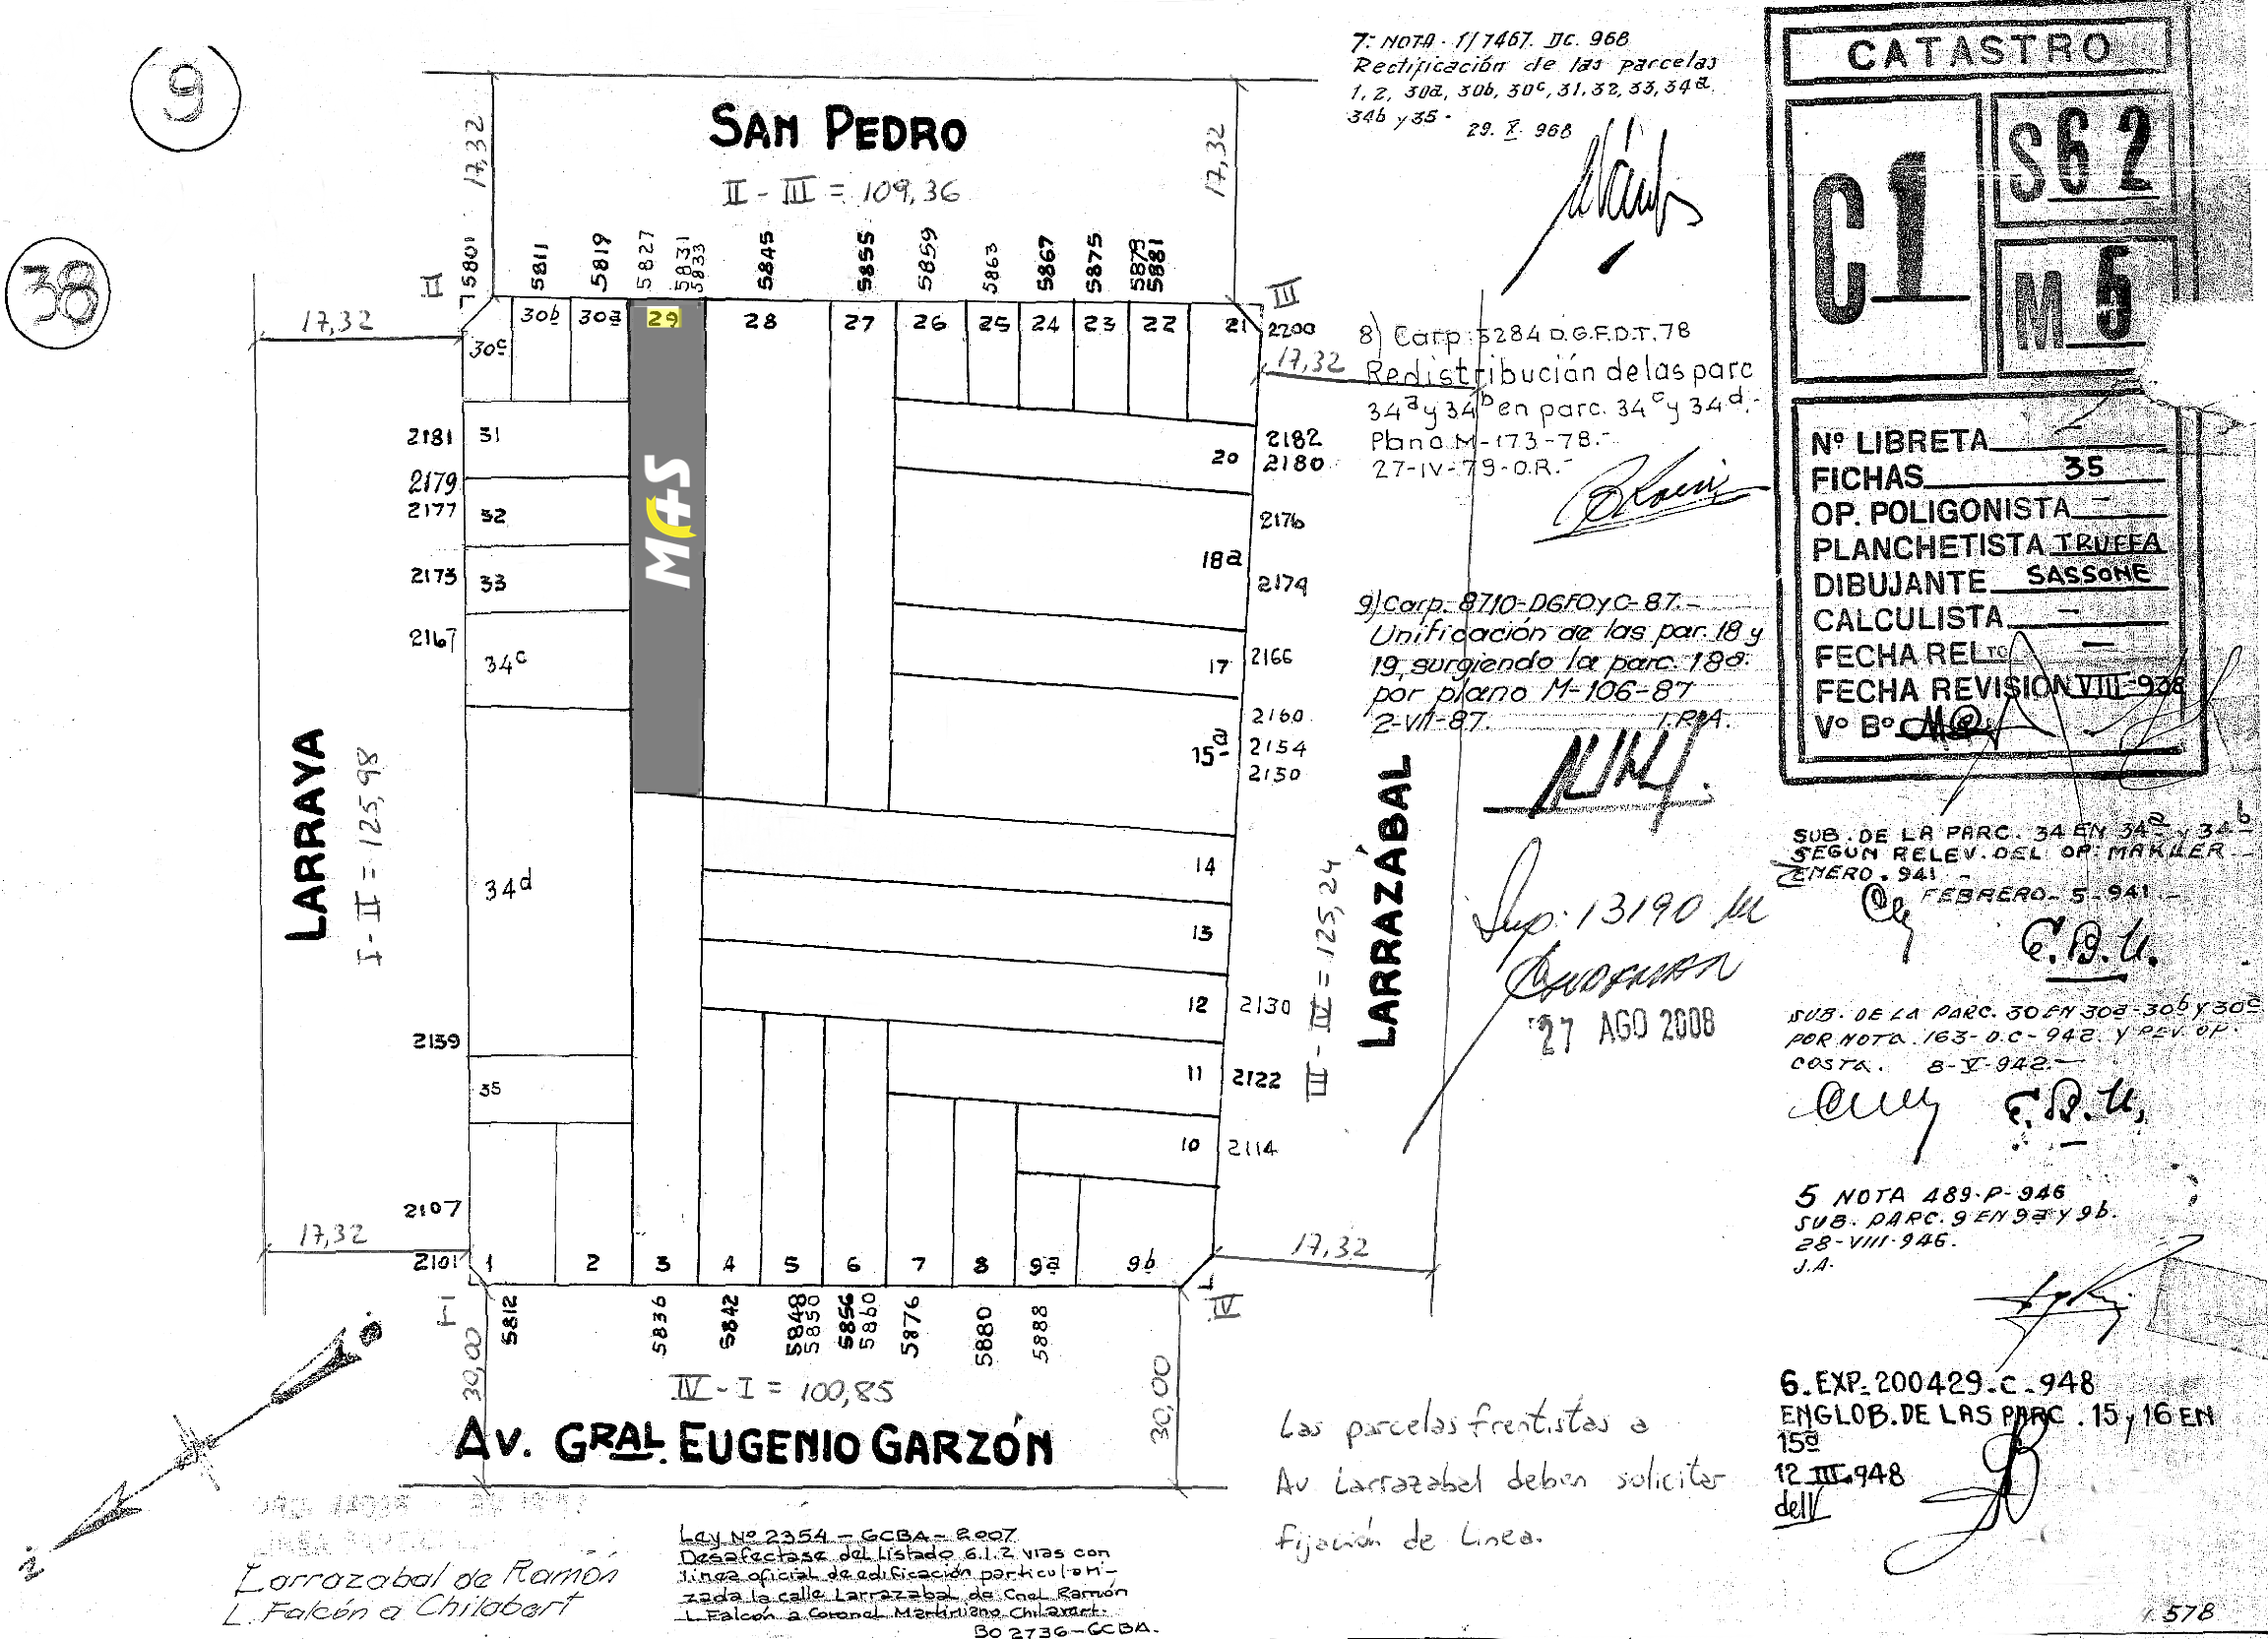 9
38
SAN PEDRO
II - III = 109,36
17,32
17,32
17,32
17,32
II
5801
5811
5819
5827
5831
5833
5845
5855
5859
5863
5867
5875
5879
5881
III
30c
30b
30a
29
28
27
26
25
24
23
22
21
2200
M+S
2181
31
2179
2177
32
2173
33
2167
34c
34d
2139
35
2107
2101
17,32
20
2182
2180
18a
2176
2174
17
2166
15a
2160
2154
2150
14
13
12
2130
11
2122
10
2114
17,32
LARRAYA
I - II = 125,98
LARRAZÁBAL
III - IV = 125,24
1
2
3
4
5
6
7
8
9a
9b
I
IV
5812
5836
5842
5848
5850
5856
5860
5876
5880
5888
30,00
30,00
IV - I = 100,85
AV. GRAL. EUGENIO GARZÓN
Larrazabal de Ramón
L. Falcón a Chilabert
Ley Nº 2354 - GCBA - 2007
Desafectase del listado 6.1.2 vias con
linea oficial de edificación particulari-
zada la calle Larrazabal de Cnel Ramón
L. Falcón a Coronel Martiniano Chilavert.
BO 2736-GCBA.
Las parcelas frentistas a
Av Larrazabal deben solicitar
fijación de Linea.
7: NOTA - 1/7467. DC. 968
Rectificación de las parcelas
1, 2, 30a, 30b, 30c, 31, 32, 33, 34a,
34b y 35 -
29. X. 968
8) Carp. 5284 D.G.F.D.T. 78
Redistribución de las parc
34a y 34b en parc. 34c y 34d.-
Plano M-173-78.-
27-IV-79-O.R.-
9) Carp. 8710-DGFOyC-87.-
Unificación de las par. 18 y
19, surgiendo la parc. 18a.
por plano M-106-87
2-VII-87.
Sup: 13190
27 AGO 2008
CATASTRO
C 1
S 62
M 5
Nº LIBRETA
FICHAS 35
OP. POLIGONISTA -
PLANCHETISTA TRUFFA
DIBUJANTE SASSONE
CALCULISTA -
FECHA RELTO -
FECHA REVISION VIII-938
Vº Bº
SUB. DE LA PARC. 34 EN 34a y 34b
SEGUN RELEV. DEL OP. MAKLER
ENERO. 941 -
FEBRERO - 5-941.-
E.B.U.
SUB. DE LA PARC. 30 EN 30a-30b y 30c
POR NOTA. 163-D.C-942. Y REV. OP.
COSTA. 8-V-942.-
E.B.U.
5 NOTA 489-P-946
SUB. PARC. 9 EN 9a y 9b.
28-VIII-946.
J.A.
6. EXP. 200429-C-948
ENGLOB. DE LAS PARC. 15 y 16 EN
15a
12 III.948
578